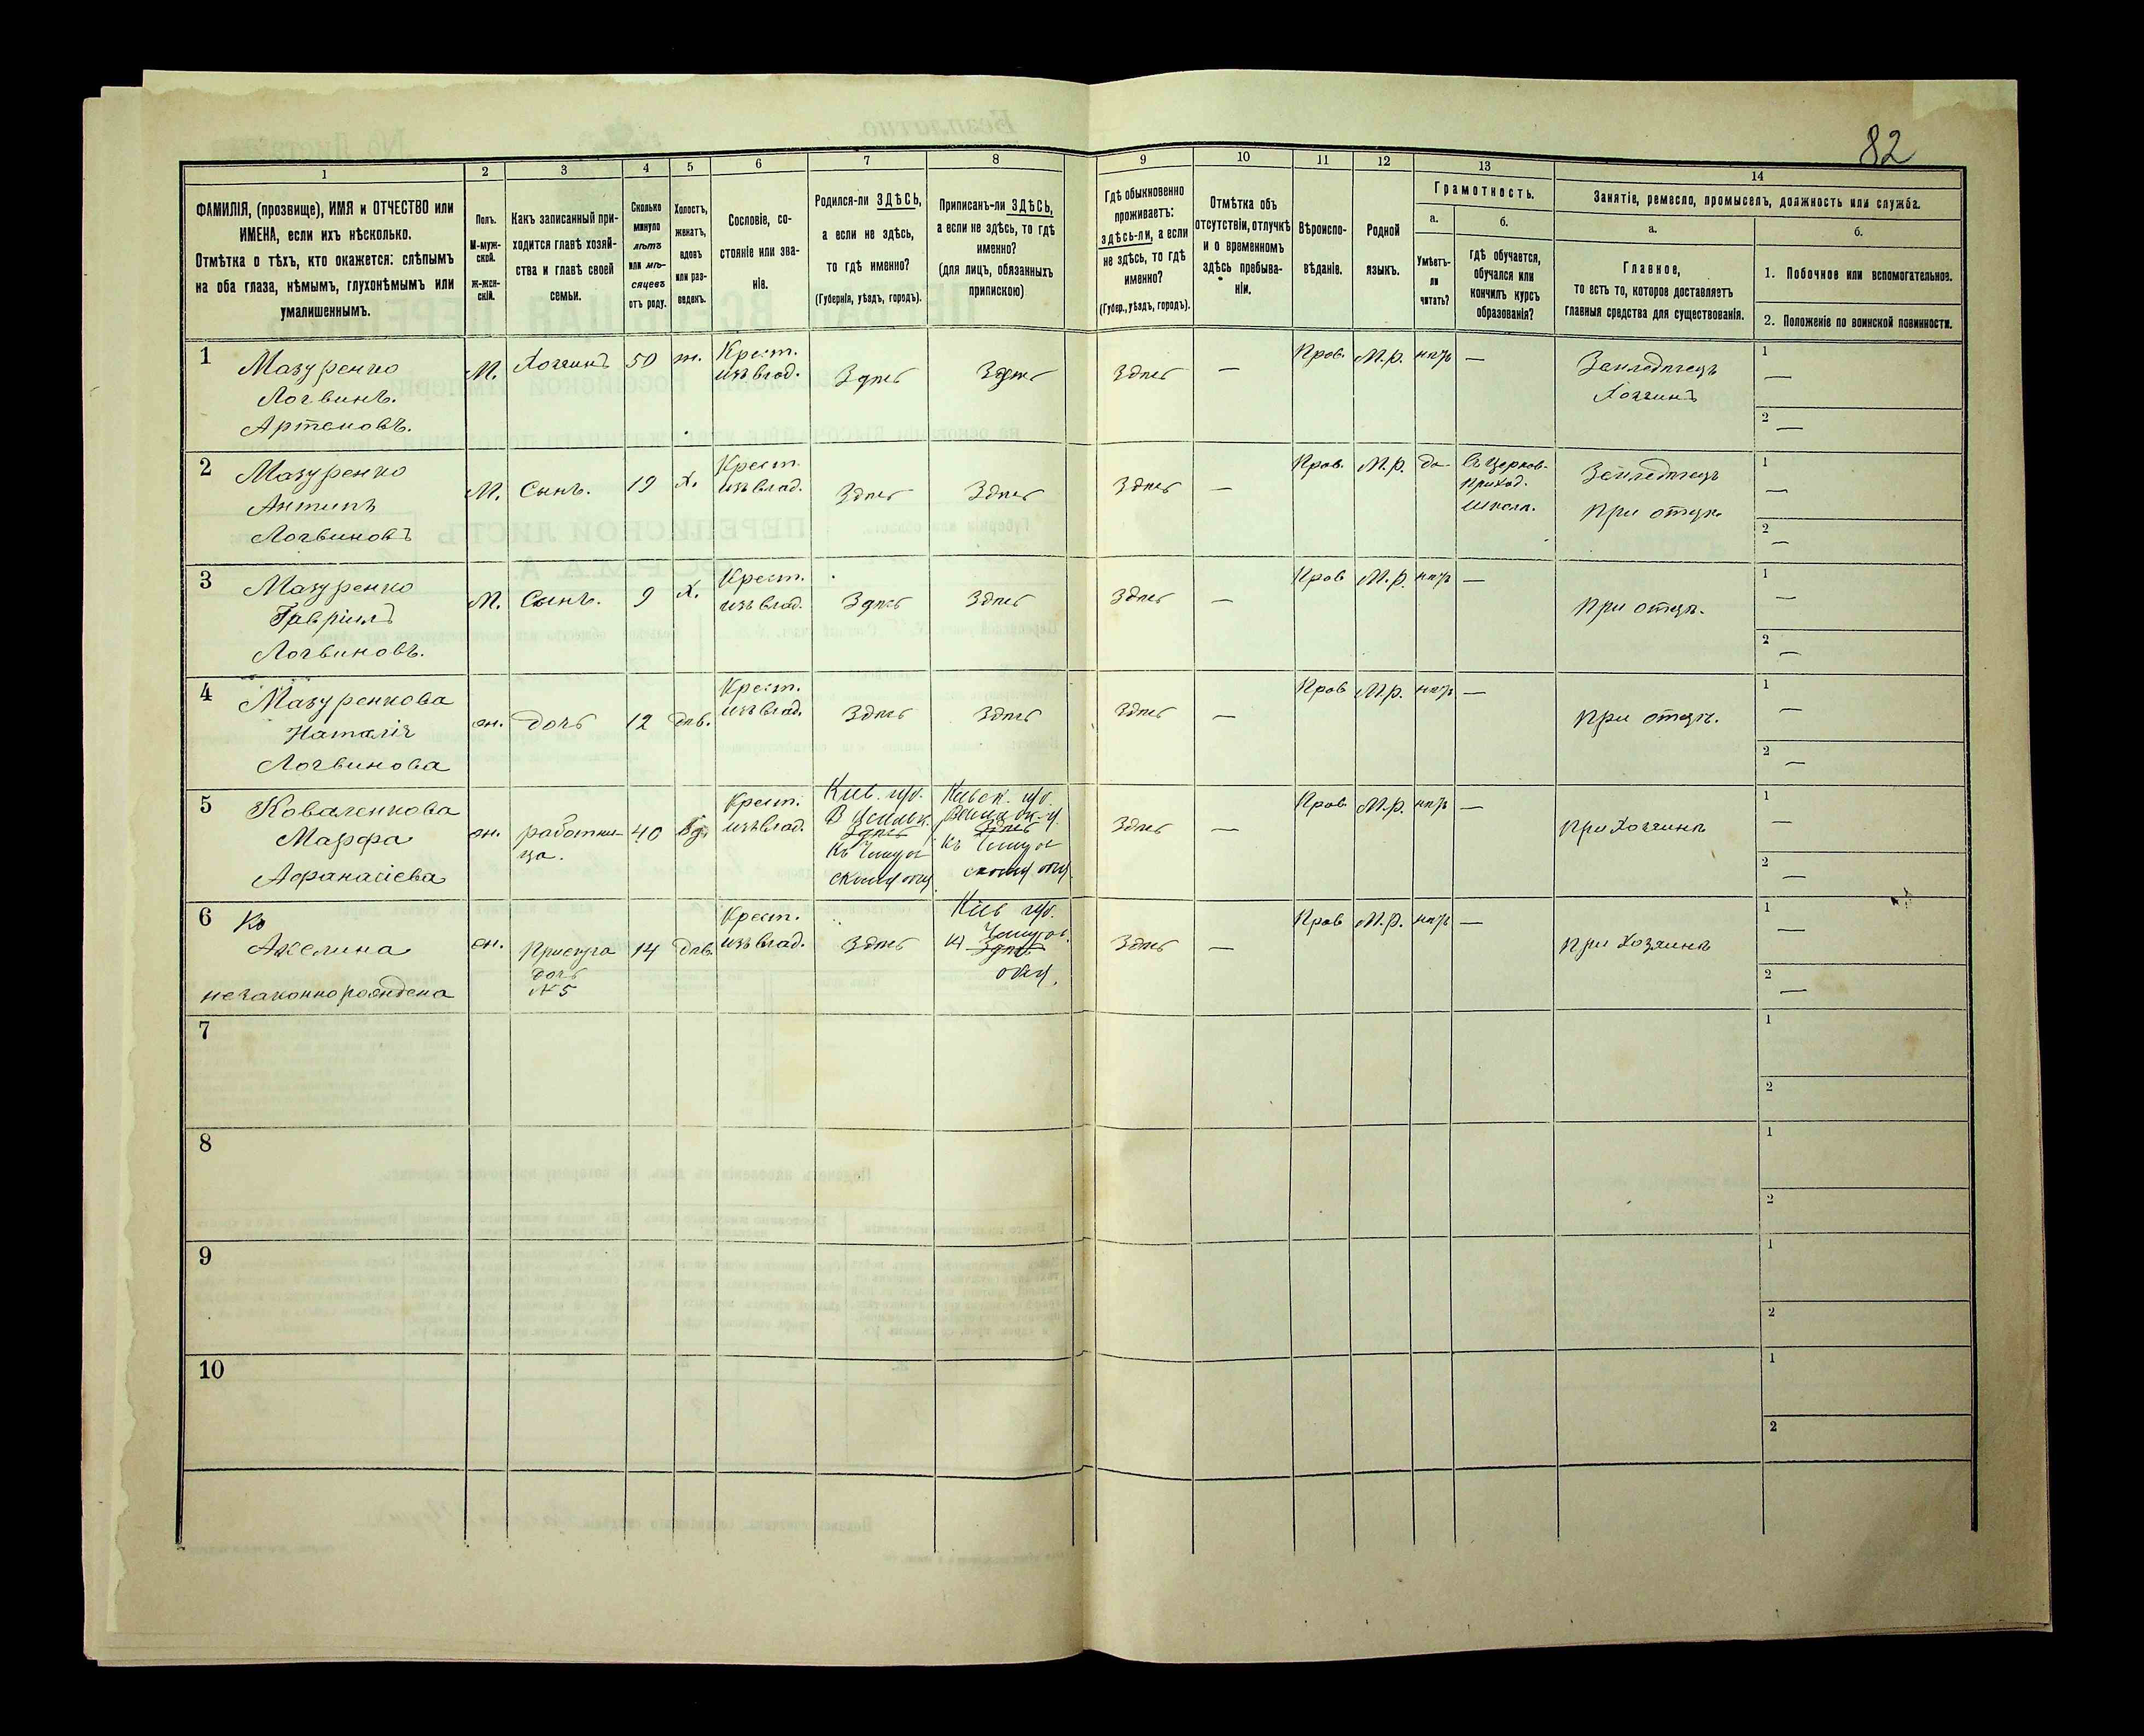 82
1 2 3 4 5 6 7 8 9 10 11 12 13 14
ФАМИЛІЯ, (прозвище), ИМЯ и ОТЧЕСТВО или
ИМЕНА, если ихъ нѣсколько.
Отмѣтка о тѣхъ, кто окажется: слѣпымъ
на оба глаза, нѣмымъ, глухонѣмымъ или
умалишеннымъ.
Полъ.
М-муж-
ской.
Ж-жен-
скій.
Какъ записанный при-
ходится главѣ хозяй-
ства и главѣ своей
семьи.
Сколько
минуло
лѣтъ
или мѣ-
сяцевъ
отъ роду.
Холостъ,
женатъ,
вдовъ
или раз-
веденъ.
Сословіе, со-
стояніе или зва-
ніе.
Родился-ли ЗДѢСЬ,
а если не здѣсь,
то гдѣ именно?
(Губернія, уѣздъ, городъ).
Приписанъ-ли ЗДѢСЬ,
а если не здѣсь, то гдѣ
именно?
(для лицъ, обязанныхъ
припискою)
Гдѣ обыкновенно
проживаетъ:
здѣсь-ли, а если
не здѣсь, то гдѣ
именно?
(Губер., уѣздъ, городъ).
Отмѣтка объ
отсутствіи, отлучкѣ
и о временномъ
здѣсь пребыва-
ніи.
Вѣроиспо-
вѣданіе.
Родной
языкъ.
Грамотность.
а.
Умѣетъ-
ли
читать?
б.
гдѣ обучается,
обучался или
кончилъ курсъ
образованія?
Занятіе, ремесло, промыселъ, должность или служба.
а.
Главное,
то есть то, которое доставляетъ
главныя средства для существованія.
б.
1. Побочное или вспомогательное.
2. Положеніе по воинской повинности.
1
Мазуренко
Логвинъ.
Артемовъ.
М.
Хозяинъ
50
ж.
Крест.
изъ влад.
Здѣсь
Здѣсь
Здѣсь
—
Прав.
М.р.
нѣтъ
—
Земледѣлецъ
Хозяинъ
1
—
2
—
2
Мазуренко
Антипъ
Логвиновъ
М.
Сынъ.
19
х.
Крест.
изъ влад.
Здѣсь
Здѣсь
Здѣсь
—
Прав.
М.р.
да
Въ церков.
приход.
школѣ.
Земледѣлецъ
при отцѣ.
1
—
2
—
3
Мазуренко
Гавріилъ
Логвиновъ.
М.
Сынъ.
9
х.
Крест.
изъ влад.
Здѣсь
Здѣсь
Здѣсь
—
Прав
М.р.
нѣтъ
—
при отцѣ.
1
—
2
—
4
Мазуренкова
Наталія
Логвинова
ж.
дочь
12
дѣв.
Крест.
изъ влад.
Здѣсь
Здѣсь
Здѣсь
—
Прав
М.р.
нѣтъ
—
при отцѣ.
1
—
2
—
5
Коваленкова
Марфа
Афанасіева
ж.
работни-
ца.
40
Вд.
Крест.
изъ влад.
Кіев. губ.
Здѣсь
Кіевск. губ.
Здѣсь
Здѣсь
—
Прав
М.р.
нѣтъ
—
при Хозяинѣ
1
—
2
—
6
Ко
Акелина
незаконнорождена
ж.
Прислуга
дочь
№ 5
14
дѣв.
Крест.
изъ влад.
Здѣсь
Кіев губ.
Здѣсь
Здѣсь
—
Прав
М.р.
нѣтъ
—
при Хозяинѣ
1
—
2
—
7
1
2
8
1
2
9
1
2
10
1
2